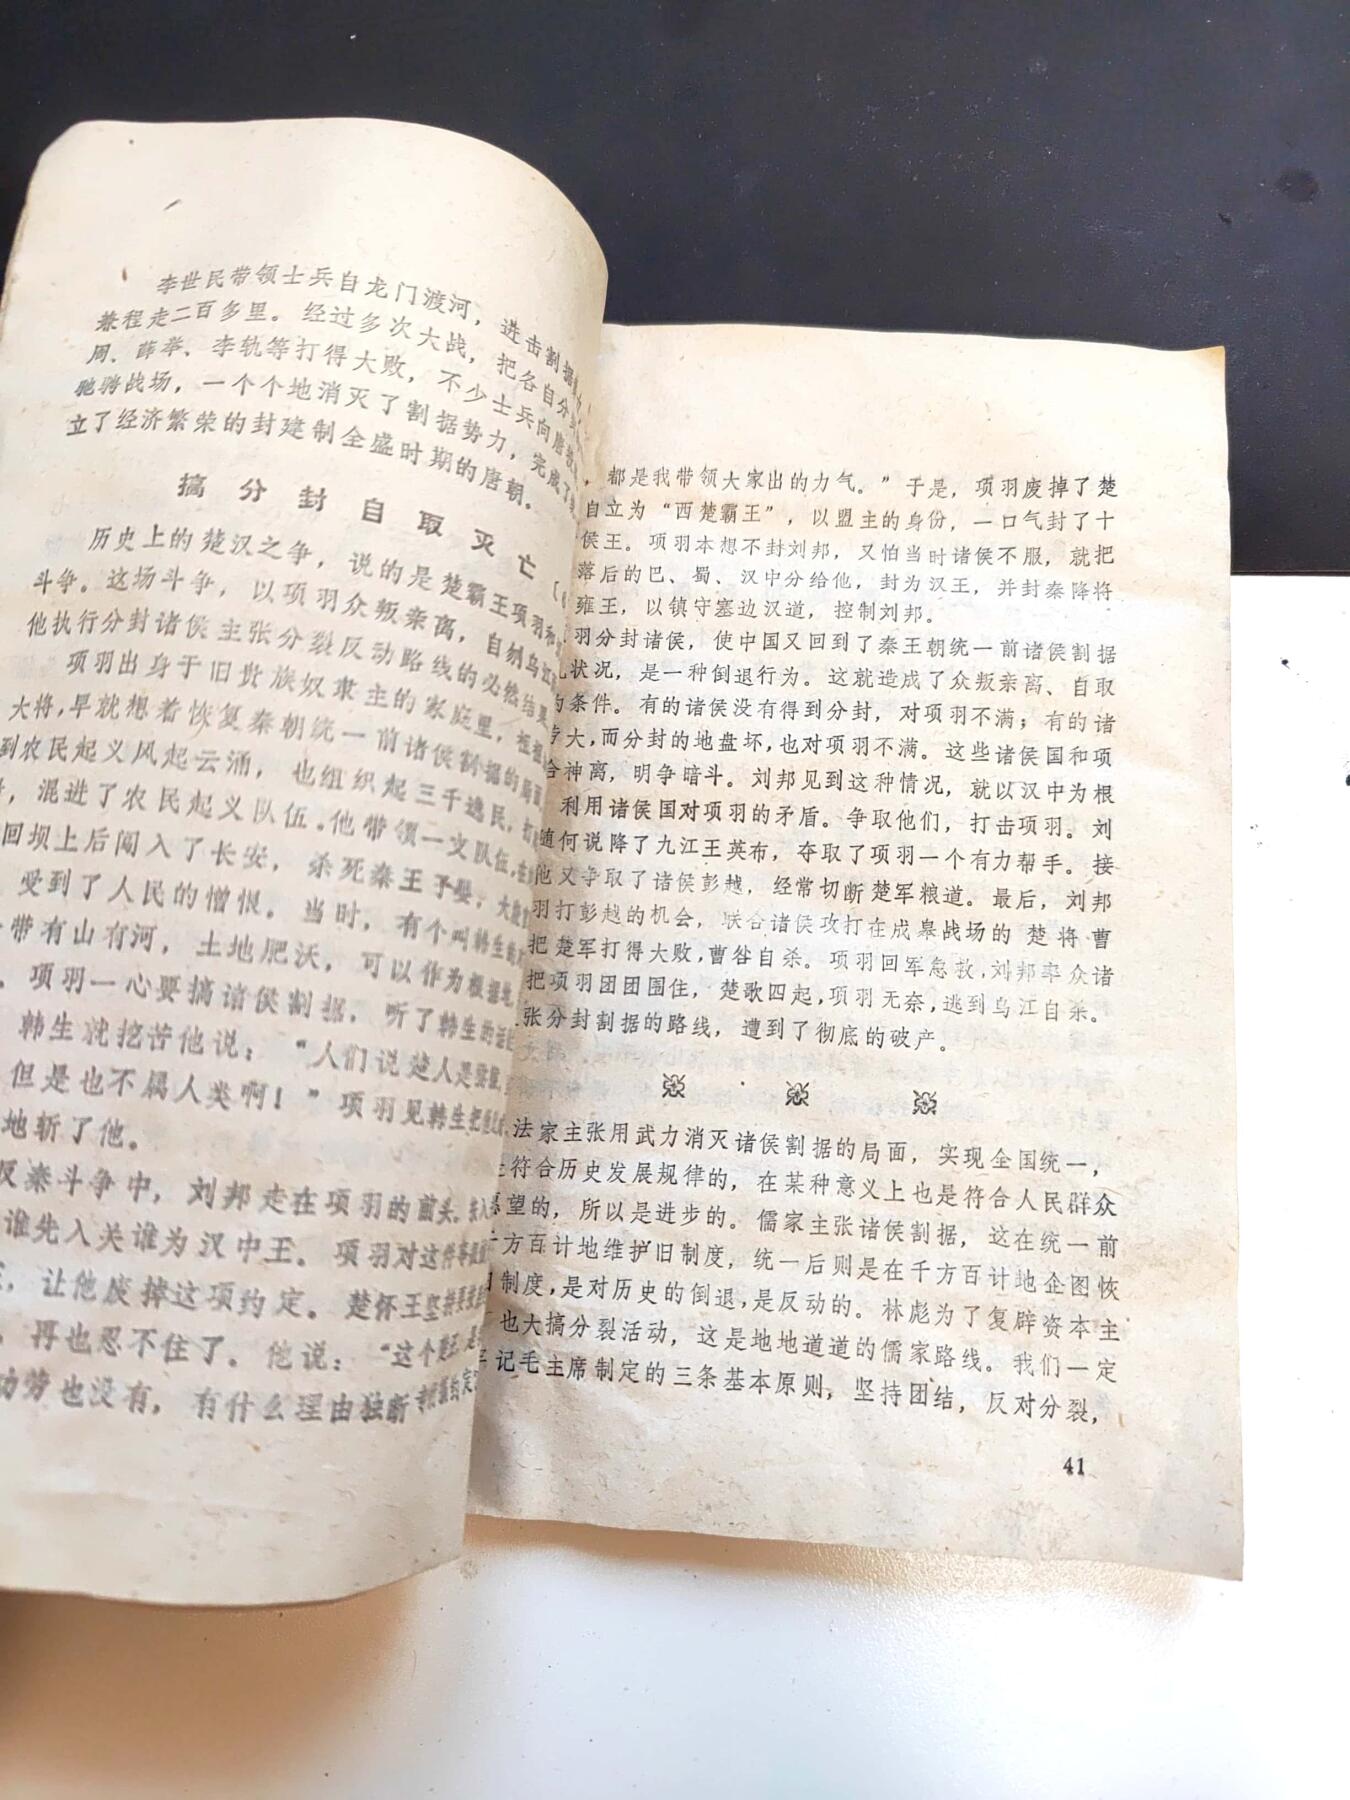 李世民带领士兵自龙门渡河，进击割据
兼程走二百多里。经过多次大战，把各自分
周、薛举、李轨等打得大败，不少士兵向唐
驰骋战场，一个个地消灭了割据势力，完成了
立了经济繁荣的封建制全盛时期的唐朝。
搞分封自取灭亡
历史上的楚汉之争，说的是楚霸王项羽和
斗争。这场斗争，以项羽众叛亲离，自刎乌江
他执行分封诸侯主张分裂反动路线的必然结果
项羽出身于旧贵族奴隶主的家庭里，祖祖
大将，早就想着恢复秦朝统一前诸侯割据的局面
到农民起义风起云涌，也组织起三千逃民，打
，混进了农民起义队伍。他带领一支队伍，在
回坝上后闯入了长安，杀死秦王子婴，大
受到了人民的憎恨。当时，有个叫韩生的
带有山有河，土地肥沃，可以作为根据地
。项羽一心要搞诸侯割据，听了韩生的话
韩生就挖苦他说：“人们说楚人是
但是也不属人类啊！”项羽见韩生把
地斩了他。
反秦斗争中，刘邦走在项羽的前头，
谁先入关谁为汉中王。项羽对这件事
，让他废掉这项约定。楚怀王坚持要
，再也忍不住了。他说：“这个
功劳也没有，有什么理由独断
，都是我带领大家出的力气。”于是，项羽废掉了楚
自立为“西楚霸王”，以盟主的身份，一口气封了十
侯王。项羽本想不封刘邦，又怕当时诸侯不服，就把
落后的巴、蜀、汉中分给他，封为汉王，并封秦降将
雍王，以镇守塞边汉道，控制刘邦。
羽分封诸侯，使中国又回到了秦王朝统一前诸侯割据
状况，是一种倒退行为。这就造成了众叛亲离、自取
条件。有的诸侯没有得到分封，对项羽不满；有的诸
大，而分封的地盘坏，也对项羽不满。这些诸侯国和项
合神离，明争暗斗。刘邦见到这种情况，就以汉中为根
利用诸侯国对项羽的矛盾。争取他们，打击项羽。刘
随何说降了九江王英布，夺取了项羽一个有力帮手。接
他又争取了诸侯彭越，经常切断楚军粮道。最后，刘邦
羽打彭越的机会，联合诸侯攻打在成皋战场的楚将曹
把楚军打得大败，曹咎自杀。项羽回军急救，刘邦率众诸
把项羽团团围住，楚歌四起，项羽无奈，逃到乌江自杀。
张分封割据的路线，遭到了彻底的破产。
法家主张用武力消灭诸侯割据的局面，实现全国统一，
符合历史发展规律的，在某种意义上也是符合人民群众
愿望的，所以是进步的。儒家主张诸侯割据，这在统一前
方百计地维护旧制度，统一后则是在千方百计地企图恢
制度，是对历史的倒退，是反动的。林彪为了复辟资本主
也大搞分裂活动，这是地地道道的儒家路线。我们一定
记毛主席制定的三条基本原则，坚持团结，反对分裂，
41